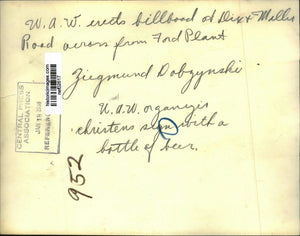 U. A. W. erects billboard at Dix & Miller
Road across from Ford Plant
Ziegmund Dobzynski
U.A.W. organizer
christens sign with a
bottle of beer.
CENTRAL PRESS
ASSOCIATION
JAN
REFERENCE
952